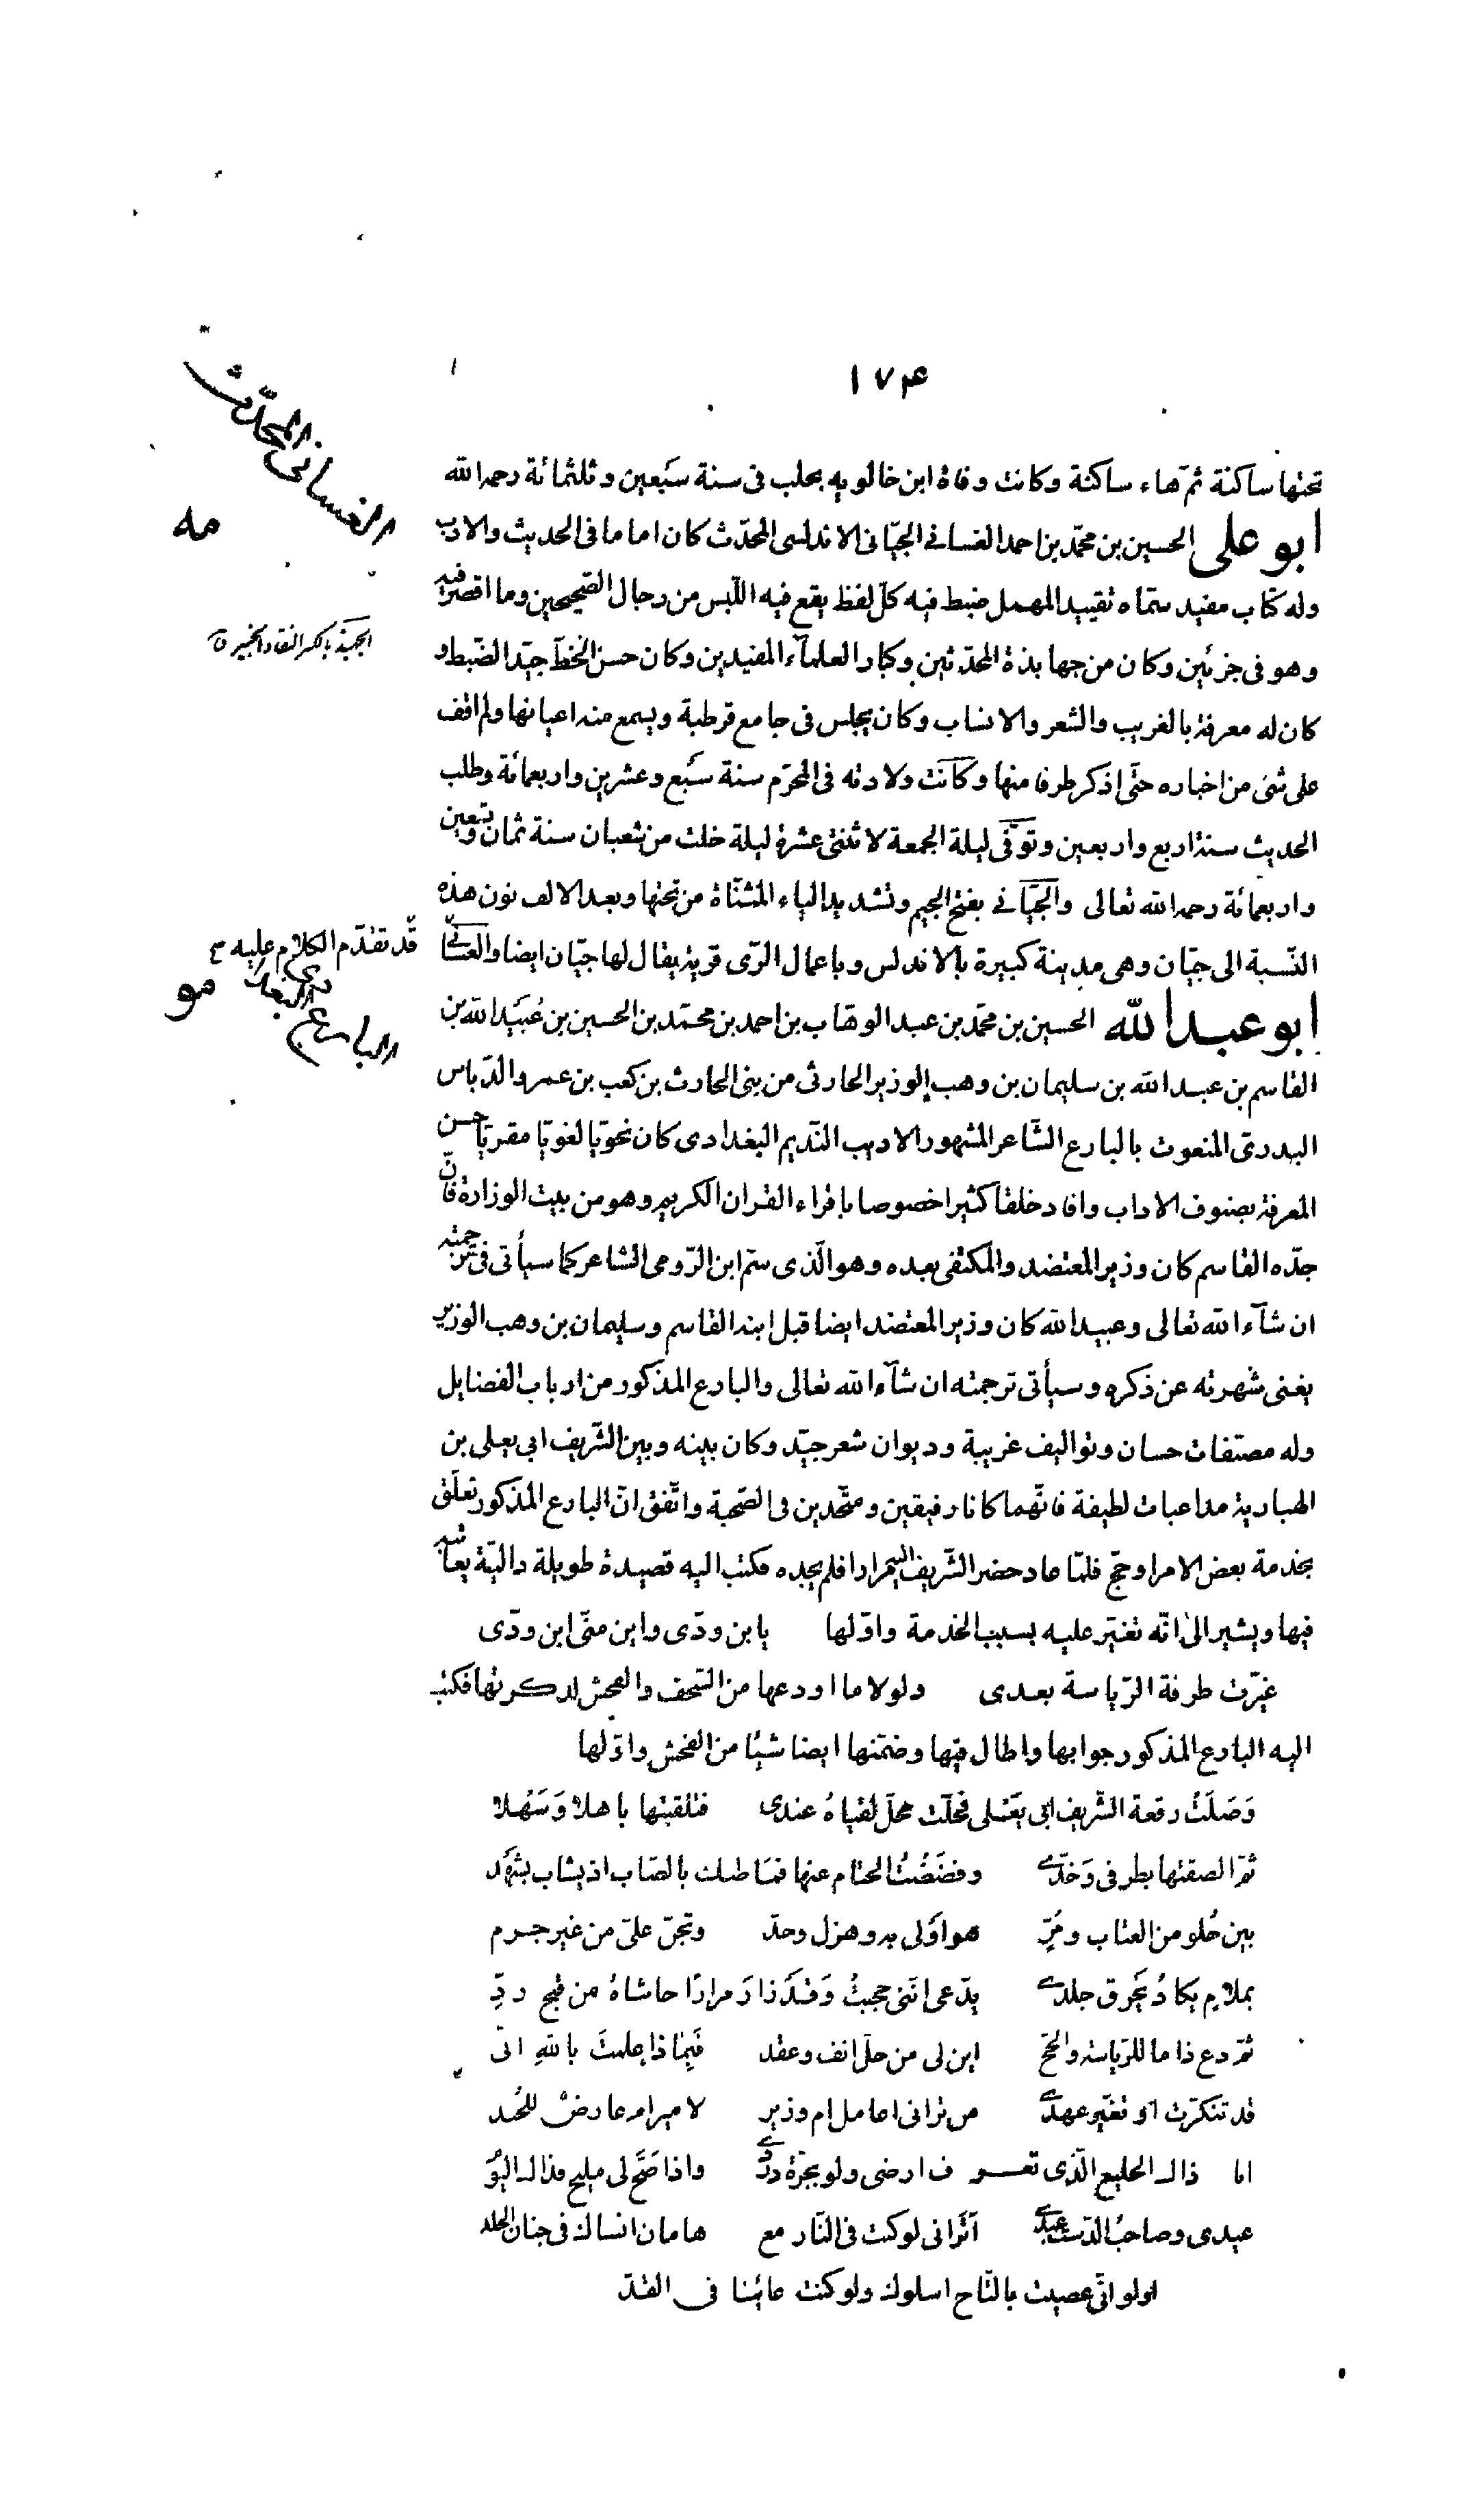 ١٧٤
تحتها ساكنة ثمّ هاء ساكنة وكانت وفاة ابن خالويه بحلب فى سنة سَبعين وثلثمائة رحمه الله
الغسانى المحدّث
مه
ابو على الحسين بن محمّد بن احمد الغسانے الجيّانى الاندلسى المحدّث كان اماما فى الحديث والادب
وله كتاب مفيد سمّاه تقييد المهمل ضبط فيه كلّ لفظ يقع فيه اللّبس من رجال الصّحيحين وما اقصر فيه
الجهبذ بالكسر النقاد الخبير ق
وهو فى جزئين وكان من جهابذة المحدّثين وكبار العلمآء المفيدين وكان حسن الخطّ جيّد الضّبط و
كان له معرفة بالغريب والشعر والانساب وكان يجلس فى جامع قرطبة ويسمع منه اعيانها ولم اقف
على شئ من اخباره حتّى اذكر طرفا منها وكانت ولادته فى المحرّم سنة سَبع وعشرين واربعمائة وطلب
الحديث سنة اربع واربعين وتوفّى ليلة الجمعة لاثنتى عشرة ليلة خلت من شعبان سنة ثمان وتسعين
واربعمائة رحمه الله تعالى والجيّانے بفتح الجيم وتشديد الياء المثنّاة من تحتها وبعد الالف نون هذه
النّسبة الى جيّان وهى مدينة كبيرة بالاندلس وباعمال الرّى قرية يقال لها جيّان ايضا والغسّانے
قد تقدّم الكلام عليه ٣
البارع البغدادى
مو
ابو عبد الله الحسين بن محمّد بن عبد الوهّاب بن احمد بن محمّد بن الحسين بن عُبَيد الله بن
القاسم بن عبد الله بن سليمان بن وهب الوزير الحارثى من بنى الحارث بن كعب بن عمرو الدّباس
البدرىّ المنعوت بالبارع الشّاعر المشهور الاديب النّديم البغدادى كان نحويّا لغويّا مقريّا حسن
المعرفة بصنوف الاداب وافاد خلقا كثيرا خصوصا باقراء القران الكريم وهو من بيت الوزارة فانّ
جدّه القاسم كان وزير المعتضد والمكتفى بعده وهو الّذى سمّ ابن الرّومى الشاعر كما سيأتى فى ترجمته
ان شآء الله تعالى وعبيد الله كان وزير المعتضد ايضا قبل ابنه القاسم وسليمان بن وهب الوزير
يغنى شهرته عن ذكره وسيأتى ترجمته ان شآء الله تعالى والبارع المذكور من ارباب الفضايل
وله مصنّفات حسان وتواليف غريبة وديوان شعر جيّد وكان بينه وبين الشّريف ابى يعلى بن
الهبارية مداعبات لطيفة فانّهما كانا رفيقين ومتّحدين فى الصّحبة واتّفق انّ البارع المذكور تعلّق
بخدمة بعض الامرا وحجّ فلمّا عاد حضر الشّريف اليه مرارا فلم يجده فكتب اليه قصيدة طويلة داليّة يعاتبه
فيها ويشير الى انّه تغيّر عليه بسبب الخدمة واوّلها يا بن ودّى واين منّى ابن ودّى
غيّرت طرفة الرّياسة بعدى ولولا ما اودعها من السّخف والفحش لذكرتها فكتب
اليه البارع المذكور جوابها واطال فيها وضمّنها ايضا شيئا من الفحش واوّلها
وَصَلَتْ رقعة الشّريف ابى يَعَلى فحلّت محلّ لقياهُ عندى فتلقيتها باهلا وَسَهْلا
ثمّ الصقتها بطرفى وَخدّے وفضَضْتُ الختام عنها فمَا ظنك بالصّاب اذ يشاب بشهْد
بين حُلو من العتاب ومُرّ هو اوْلى به وهزل وجدّ وتجنّ علىّ من غير جرم
بملامٍ يكادُ يُحرق جلدے يدّعى انّنى حجبتُ وَقد زارَ مرارًا حاشاهُ من قبح ردّ
ثمّ دع ذا ما للرّياسة والحجّ ابن لى من حلّ انف وعقد فبمٰاذا علمتَ باللّهِ انّى
قد تنكّرت او تغيّر عهدے من ترانى اعامل ام وزير لامير ام عارضٌ للجُند
انا ذاك الخليع الّذى تعرف ارضى ولو بجرّة درْدے واذا صَحّ لى مليح فذاك اليوْ
عيدى وصاحبُ الدّست عبدے أتُرانى لو كنت فى النّار مع هامان انساك فى جنان الخلد
اولو انّى عصبت بالتّاج اسلوك ولو كنت عانيا فى القدّ